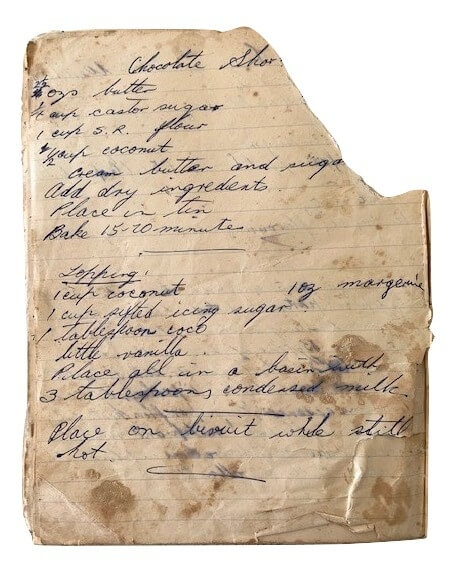 Chocolate Shor
ozs butter
cup castor sugar
1 cup S.R. flour
1/2 cup coconut
cream butter and suga
Add dry engredients.
Place in tin
Bake 15-20 minutes
Topping:
1 cup coconut 1oz margerine
1 cup sifted icing sugar
1 tablespoon coco
little vanilla.
Place all in a basin with
3 tablespoons condensed milk.
Place on bisciut while still
hot.